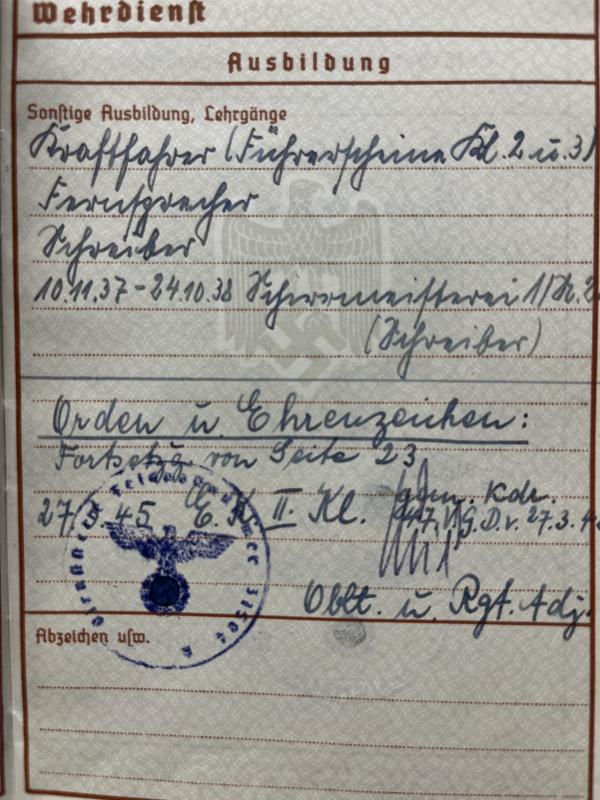 Wehrdienst
Ausbildung
Sonstige Ausbildung, Lehrgänge
Kraftfahrer (Führerscheine Kl. 2 u. 3)
Fernsprecher
Schreiber
10.11.37-24.10.38 Schirrmeisterei
(Schreiber)
Orden u. Ehrenzeichen:
Fortsetz. von Seite 23
27.3.45 E.K. II. Kl. gem. Kdr.
G.D. v. 27.3.
Oblt. u. Rgt. Adj.
Abzeichen usw.